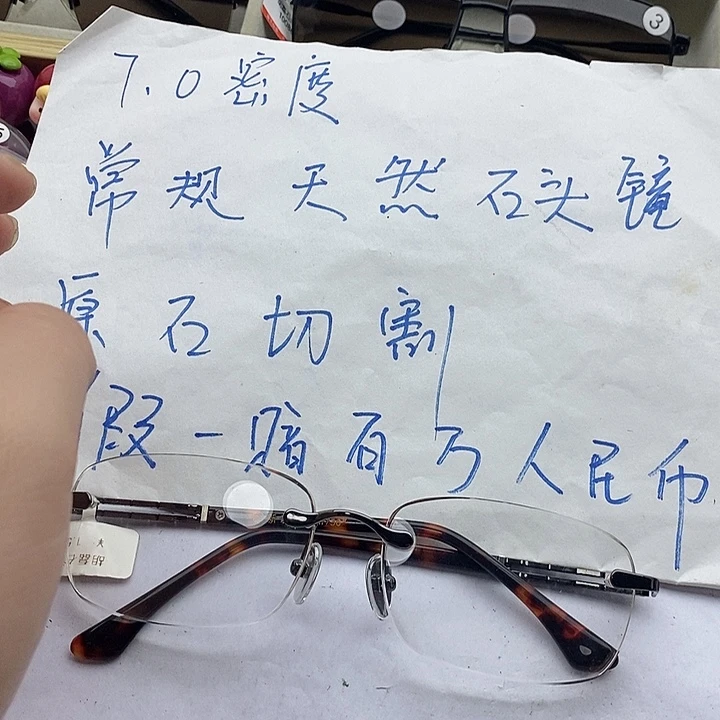 7.0密度
常规天然石头镜
原石切割
假一赔百万人民币
3